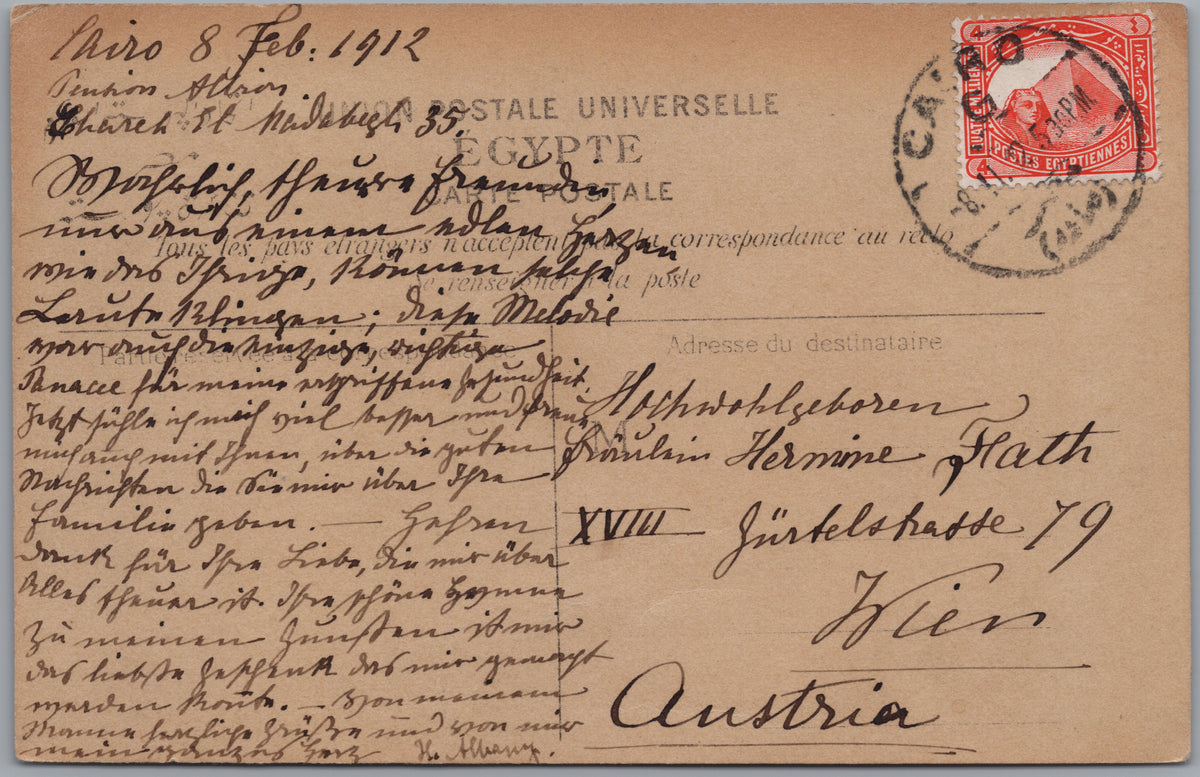 Cairo 8 Feb: 1912
Pension Albion
Chareh El Madabegh 35.
UNION POSTALE UNIVERSELLE
ÉGYPTE
CARTE POSTALE
Tous les pays étrangers n'acceptent la correspondance au recto
Se renseigner à la poste
Wahrlich, theure Freundin
nur aus einem edlen Herzen
wie das Ihrige, können solche
Laute klingen; diese Melodie
war auch die einzige, richtige
Panacee für meine ergriffene Gesundheit.
Jetzt fühle ich mich viel besser und freue
mich auch mit Ihnen, über die guten
Nachrichten die Sie mir über Ihre
Familie geben. —
dank für Ihre Liebe, die mir über
Alles theuer ist. Ihre schöne Hymne
zu meinen Gunsten ist mir
das liebste Geschenk das mir gemacht
werden konnte. — Von meinem
Manne herzliche Grüße und von mir
mein ganzes Herz H.
Adresse du destinataire
M
Hochwohlgeboren
Fräulein Hermine Flath
XVIII Gürtelstrasse 79
Wien
Austria
CAIRO
5 30 PM
POSTES EGYPTIENNES
4
٤